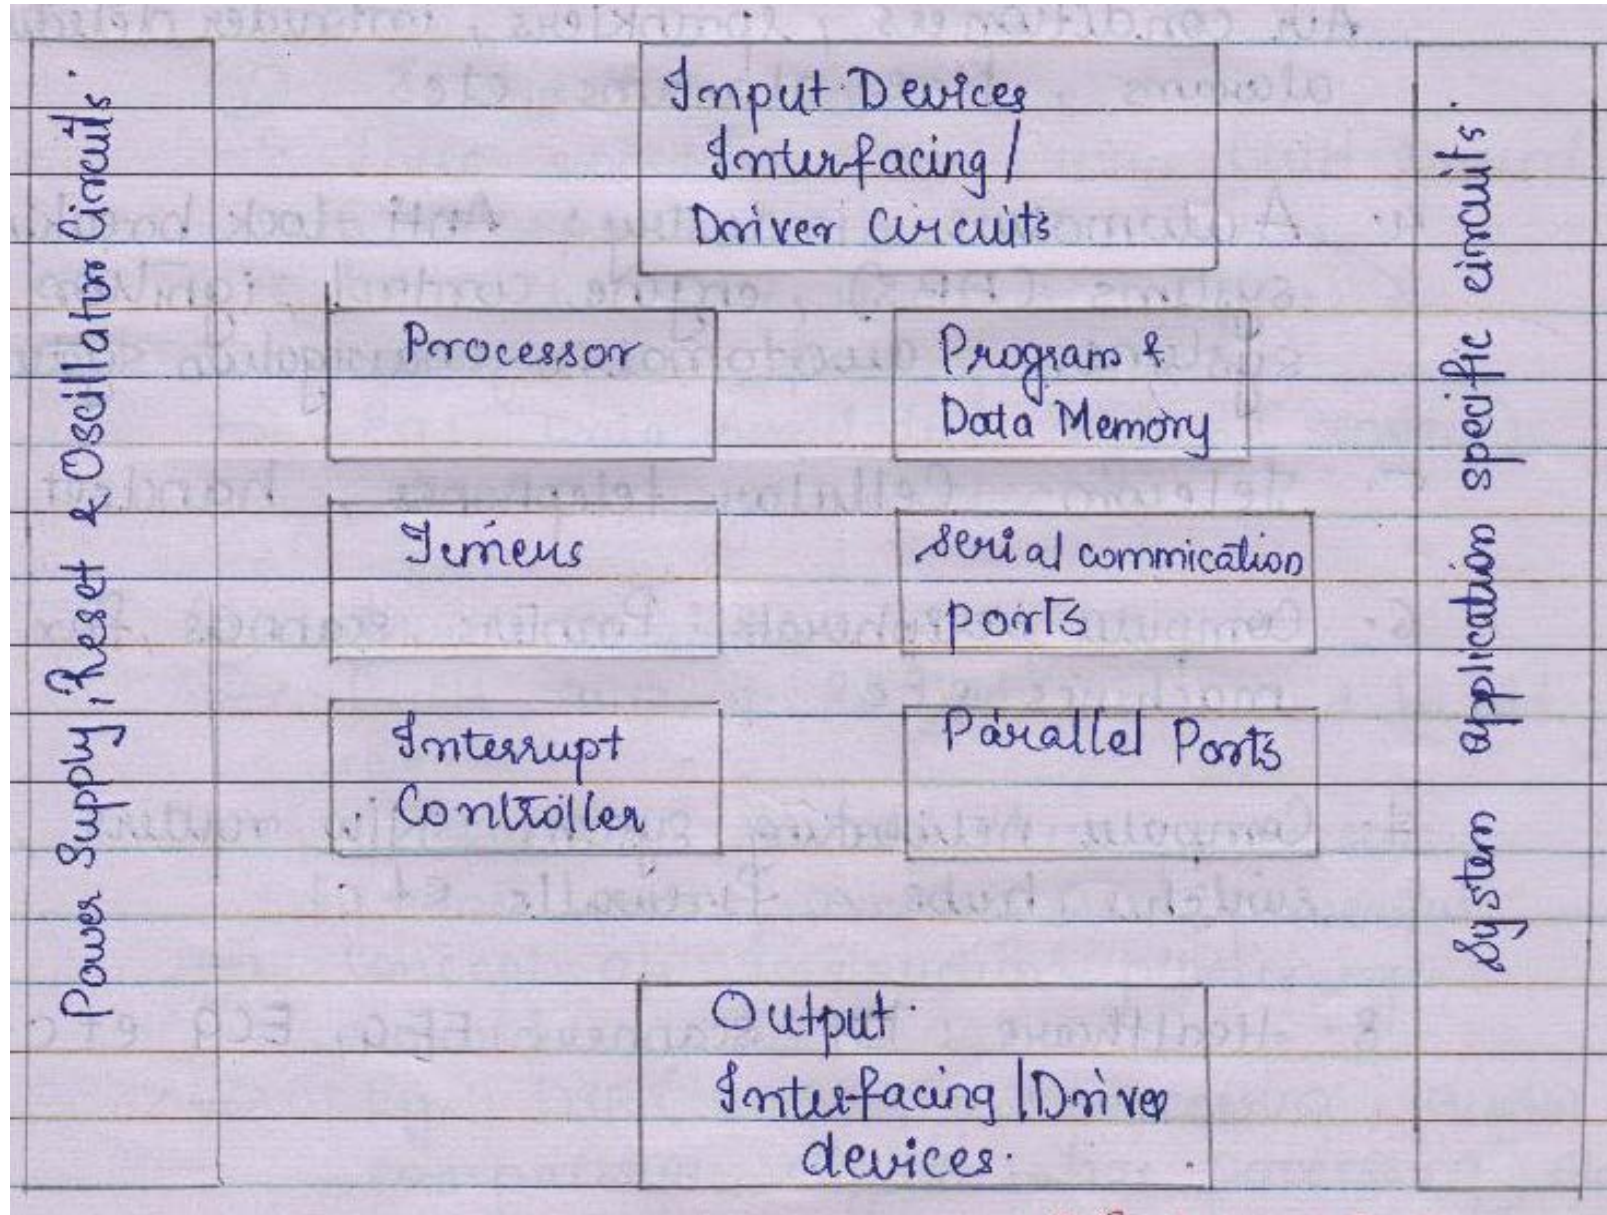 Power Supply, Reset & Oscillator Circuits.
Input Devices
Interfacing /
Driver Circuits
Processor
Program &
Data Memory
Timers
Serial commication
ports
Interrupt
Controller
Parallel Ports
Output
Interfacing / Driver
devices.
System application specific circuits.